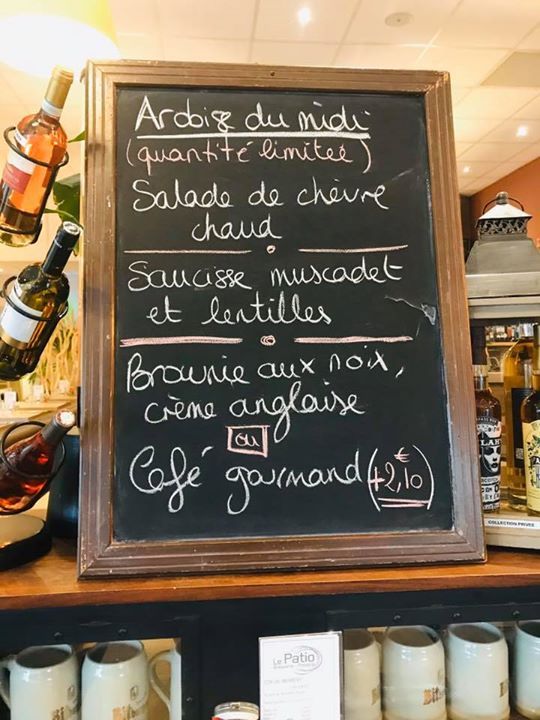 Ardoise du midi
(quantité limitée)
Salade de chèvre
chaud
Saucisse muscadet
et lentilles
Brownie aux noix,
crème anglaise
ou
Café gourmand (+2,10€)
COLLECTION PRIVEE
Le Patio